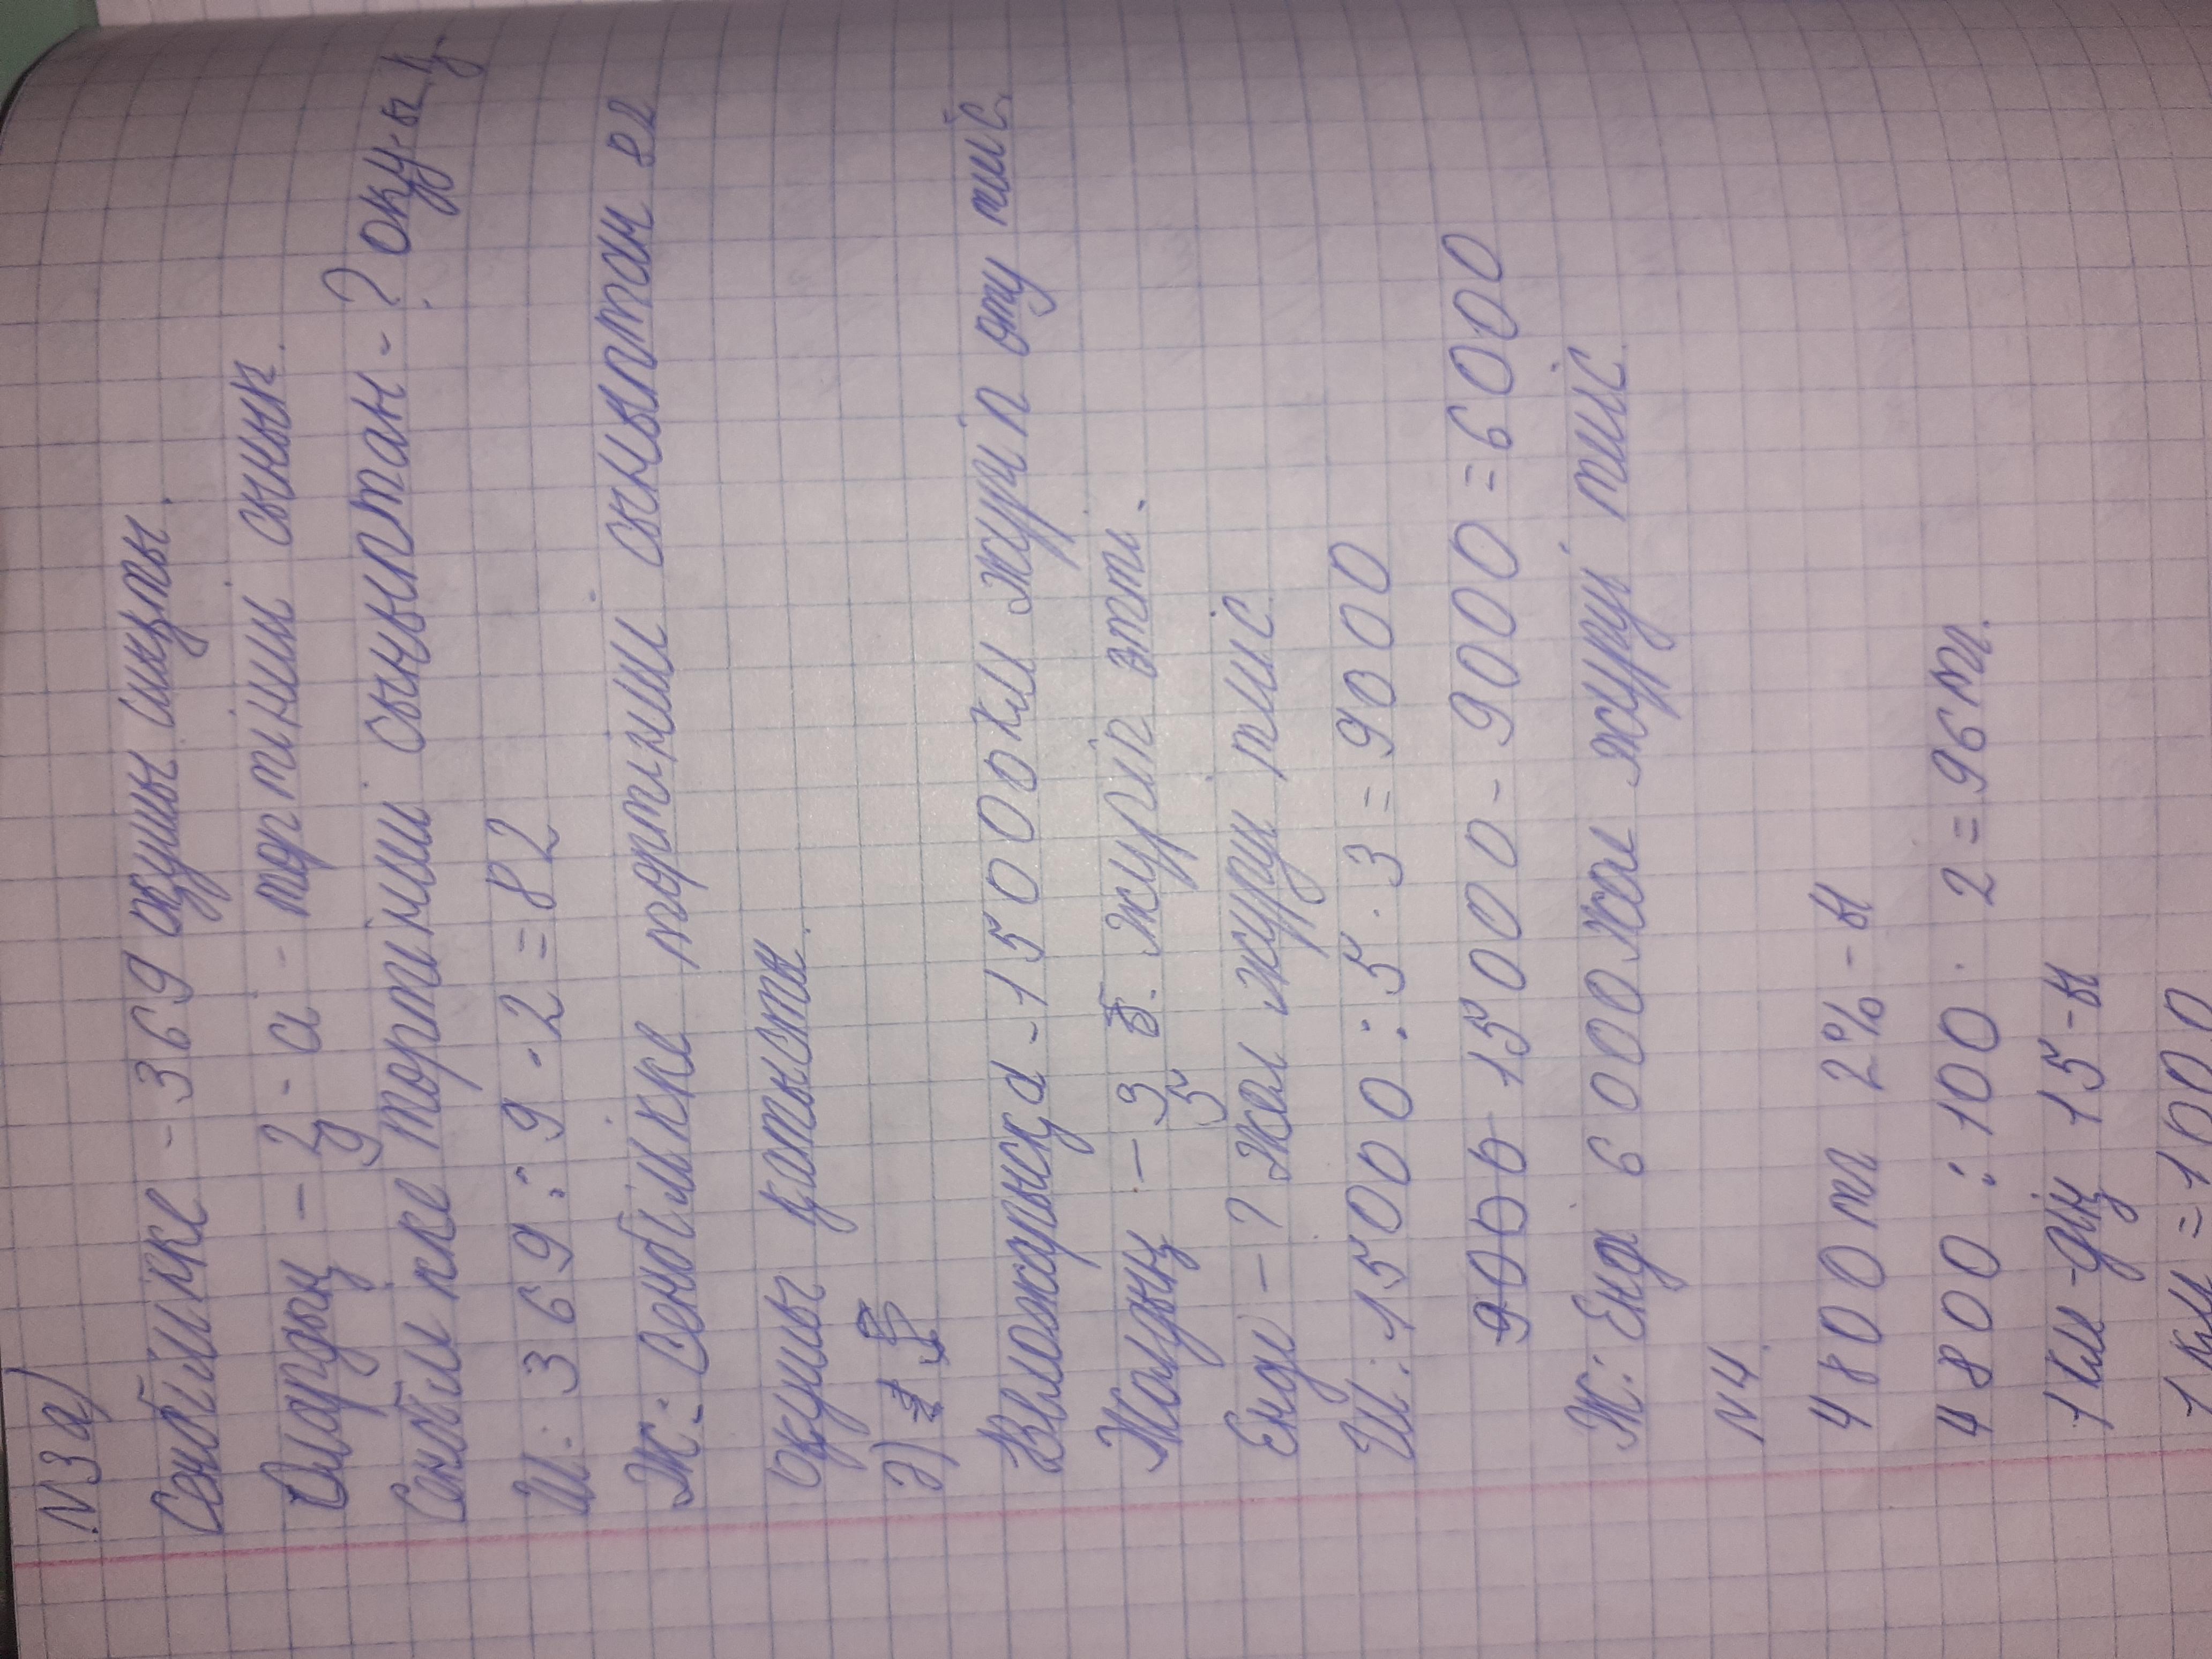 №3 а)
Сенбілікке - 369 оқушы шықты.
Олардың - 2/9 - сі - төртінші сынып.
Сенбілікке төртінші сыныптан - ? оқу-ы қ.
Ш: 369 : 9 · 2 = 82
Ж: Сенбілікке төртінші сыныптан 82
оқушы қатысты.
ә)
Веложарысқа - 15000км жүріп өту тиіс.
Жолдың - 3/5 б. жүріп өтті.
Енді - ? жол жүру тиіс
Ш: 15000 : 5 · 3 = 9000
15000 - 9000 = 6000
Ж: Енді 6000 жол жүру тиіс.
№4.
4800 тг 2% - ы
4800 : 100 · 2 = 96 тг.
1 км - дің 15 - ы
1 км = 1000